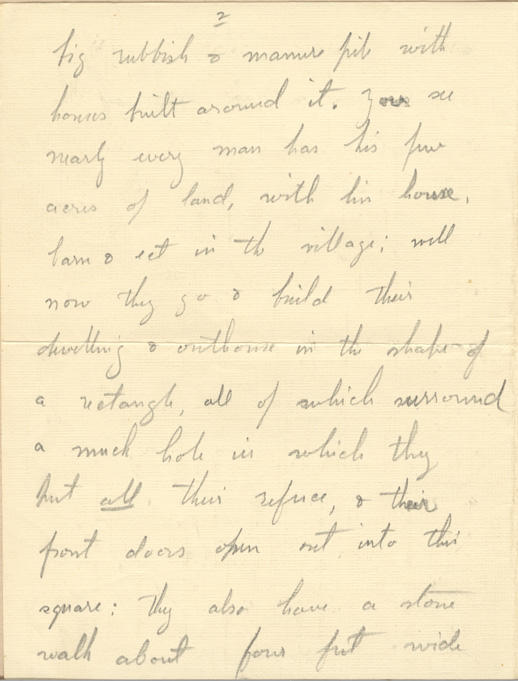 2
big rubbish & manure pile with
houses built around it. You see
nearly every man has his few
acres of land, with his house,
barn & ect in the village; well
now they go & build their
dwelling & outhouse in the shape of
a rectangle, all of which surround
a muck hole in which they
put all their refuse, & their
front doors open out into this
square: they also have a stone
walk about four feet wide